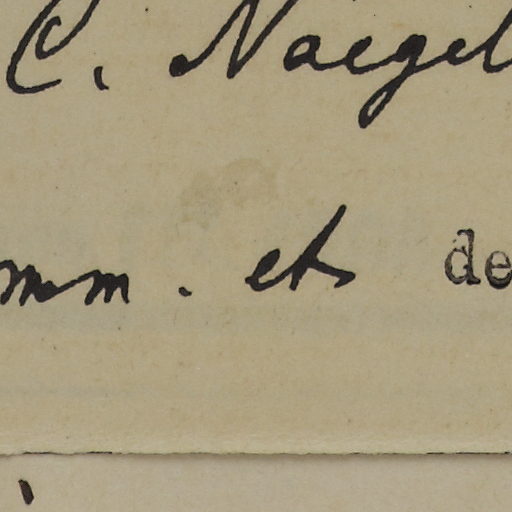 C. Naegel
mm. et de